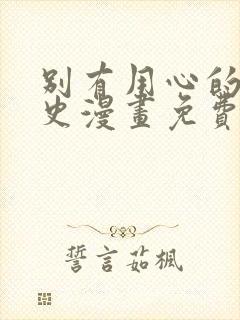 別有用心的
史漫畫免費
誓言茹楓